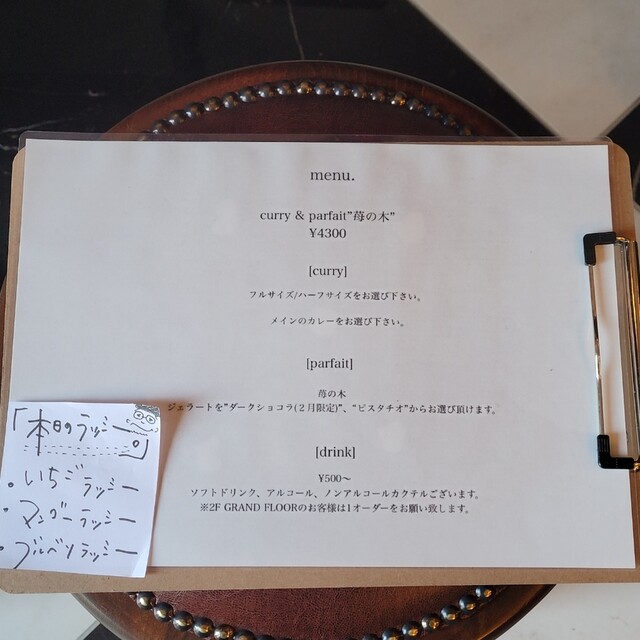 menu.
curry & parfait"苺の木"
¥4300
[curry]
フルサイズ/ハーフサイズをお選び下さい。
メインのカレーをお選び下さい。
[parfait]
苺の木
ジェラートを"ダークショコラ(2月限定)"、"ピスタチオ"からお選び頂けます。
[drink]
¥500〜
ソフトドリンク、アルコール、ノンアルコールカクテルございます。
※2F GRAND FLOORのお客様は1オーダーをお願い致します。
「本日のラッシー。」
・いちごラッシー
・マンゴーラッシー
・ブルベリラッシー